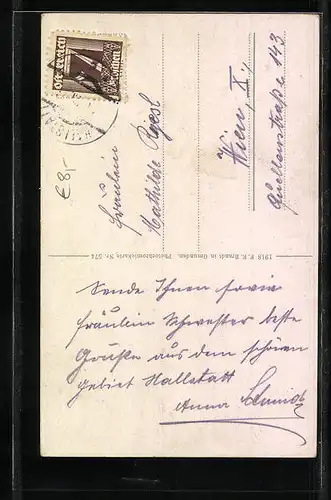 Fräulein
Mathilde
Wien, X,
Quellenstraße 143
1918 F. E. Brandt in Gmunden. Photochromiekarte Nr. 574
€ 8,-
Sende Ihnen sowie
Fräulein Schwester beste
Grüße aus dem schönen
Gebiet Hallstatt
Anna Schmidt